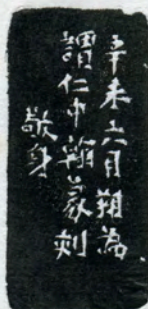 辛未六月朔為
謂仁中翰篆刻
敬身